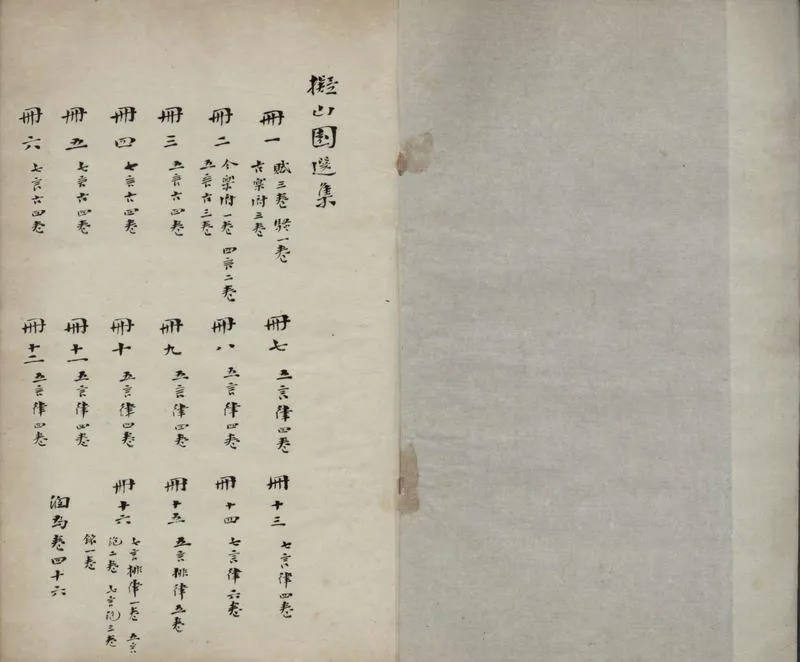 擬山園選集
冊一 賦三卷 騷一卷
古樂府三卷
冊二 今樂府一卷 四言二卷
五言古三卷
冊三 五言古四卷
冊四 七言古四卷
冊五 七言古四卷
冊六 七言古四卷
冊七 五言律四卷
冊八 五言律四卷
冊九 五言律四卷
冊十 五言律四卷
冊十一 五言律四卷
冊十二 五言律四卷
冊十三 七言律四卷
冊十四 七言律六卷
冊十五 五言排律五卷
冊十六 七言排律一卷 五言
二卷 七言 三卷
銘一卷
卷四十六